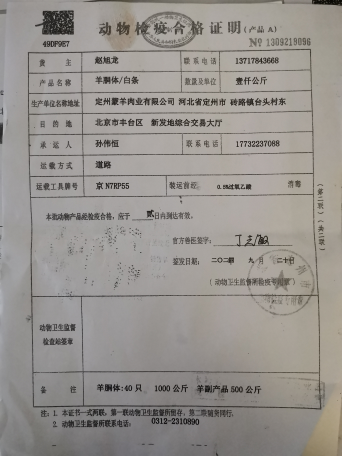 动物检疫合格证明（产品A）
49DF9E7
№ 1309219096
货主 赵旭龙 联系电话 13717843668
产品名称 羊胴体/白条 数量及单位 壹仟公斤
生产单位名称地址 定州蒙羊肉业有限公司 河北省定州市 砖路镇台头村东
目的地 北京市丰台区 新发地综合交易大厅
承运人 孙伟恒 联系电话 17732237088
运载方式 道路
运载工具牌号 京 N7RP55 装运前经 0.5%过氧乙酸 消毒
本批动物产品经检疫合格，应于 贰 日内到达有效。
官方兽医签字：
签发日期：二〇二四 九月 二十日
（动物卫生监督所检疫专用章）
动物卫生监督
检查站签章
备注 羊胴体:40只 1000公斤 羊副产品500公斤
注：1. 本证书一式两联，第一联动物卫生监督所留存，第二联随货同行。
2. 动物卫生监督所联系电话： 0312-2310890
（第二联）